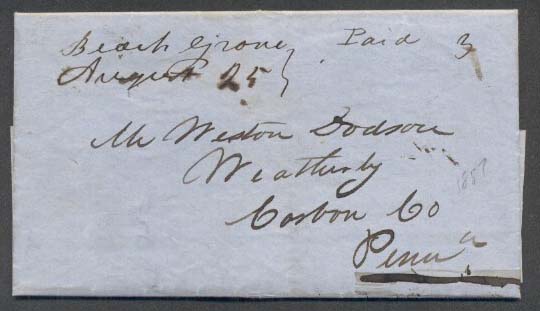 Beach Grove } Paid 3
August 25
Mr Weston Dodson
Weatherly
Carbon Co
Penna
1857